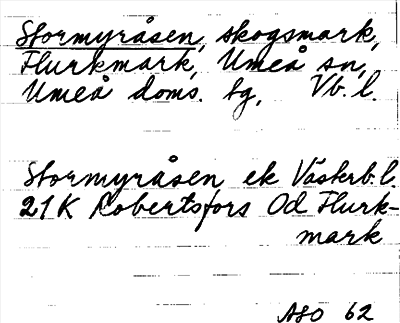 Stormyråsen, skogsmark,
Flurkmark, Umeå sn,
Umeå doms. tg, Vb. l.
Stormyråsen ek Västerb. l.
21K Robertsfors Od Flurk-
mark
ASO 62